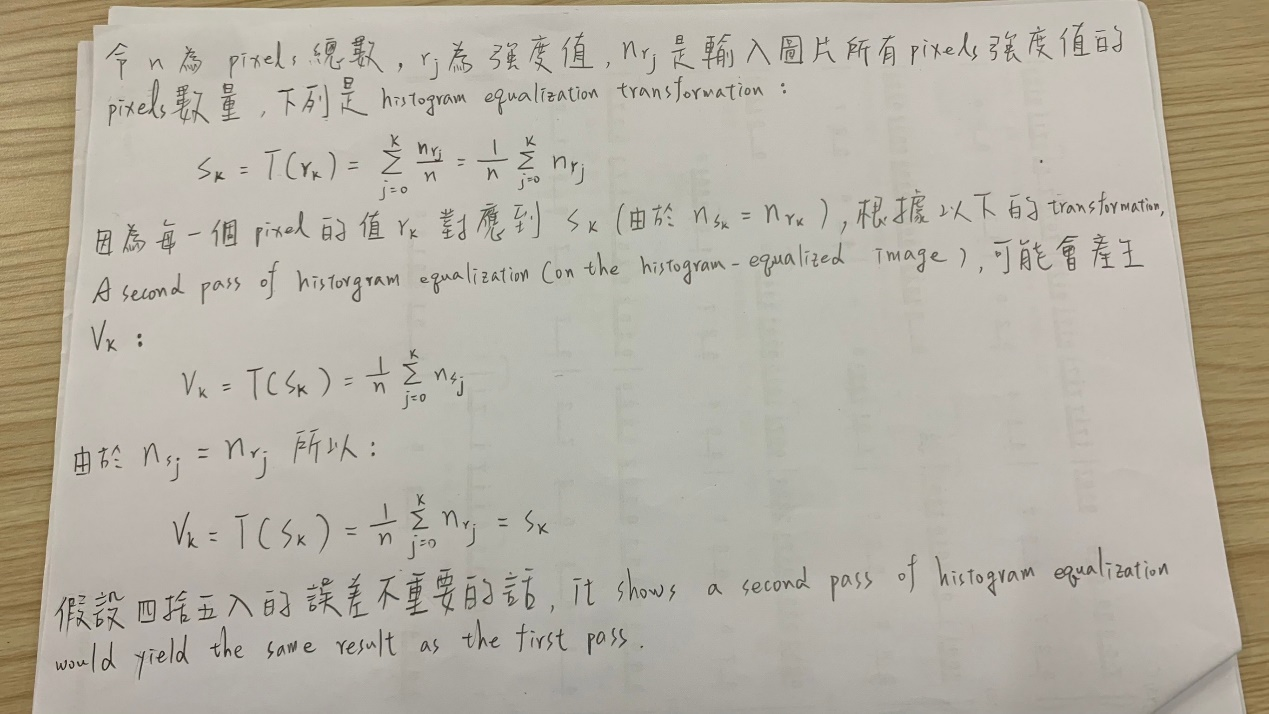 令 n 為 pixels 總數, rj 為 強度值, nrj 是輸入圖片所有pixels強度值的
pixels數量, 下列是 histogram equalization transformation :
sₖ = T(rₖ) = Σ_{j=0}^{K} nrj/n = 1/n Σ_{j=0}^{K} nrj
因為每一個 pixel 的值 rₖ 對應到 sₖ (由於 nsₖ = nrₖ), 根據以下的 transformation,
A second pass of historgram equalization (on the histogram-equalized image), 可能會產生
Vₖ :
Vₖ = T(sₖ) = 1/n Σ_{j=0}^{K} nsj
由於 nsj = nrj 所以:
Vₖ = T(sₖ) = 1/n Σ_{j=0}^{K} nrj = sₖ
假設四捨五入的誤差不重要的話, it shows a second pass of histogram equalization
would yield the same result as the first pass.